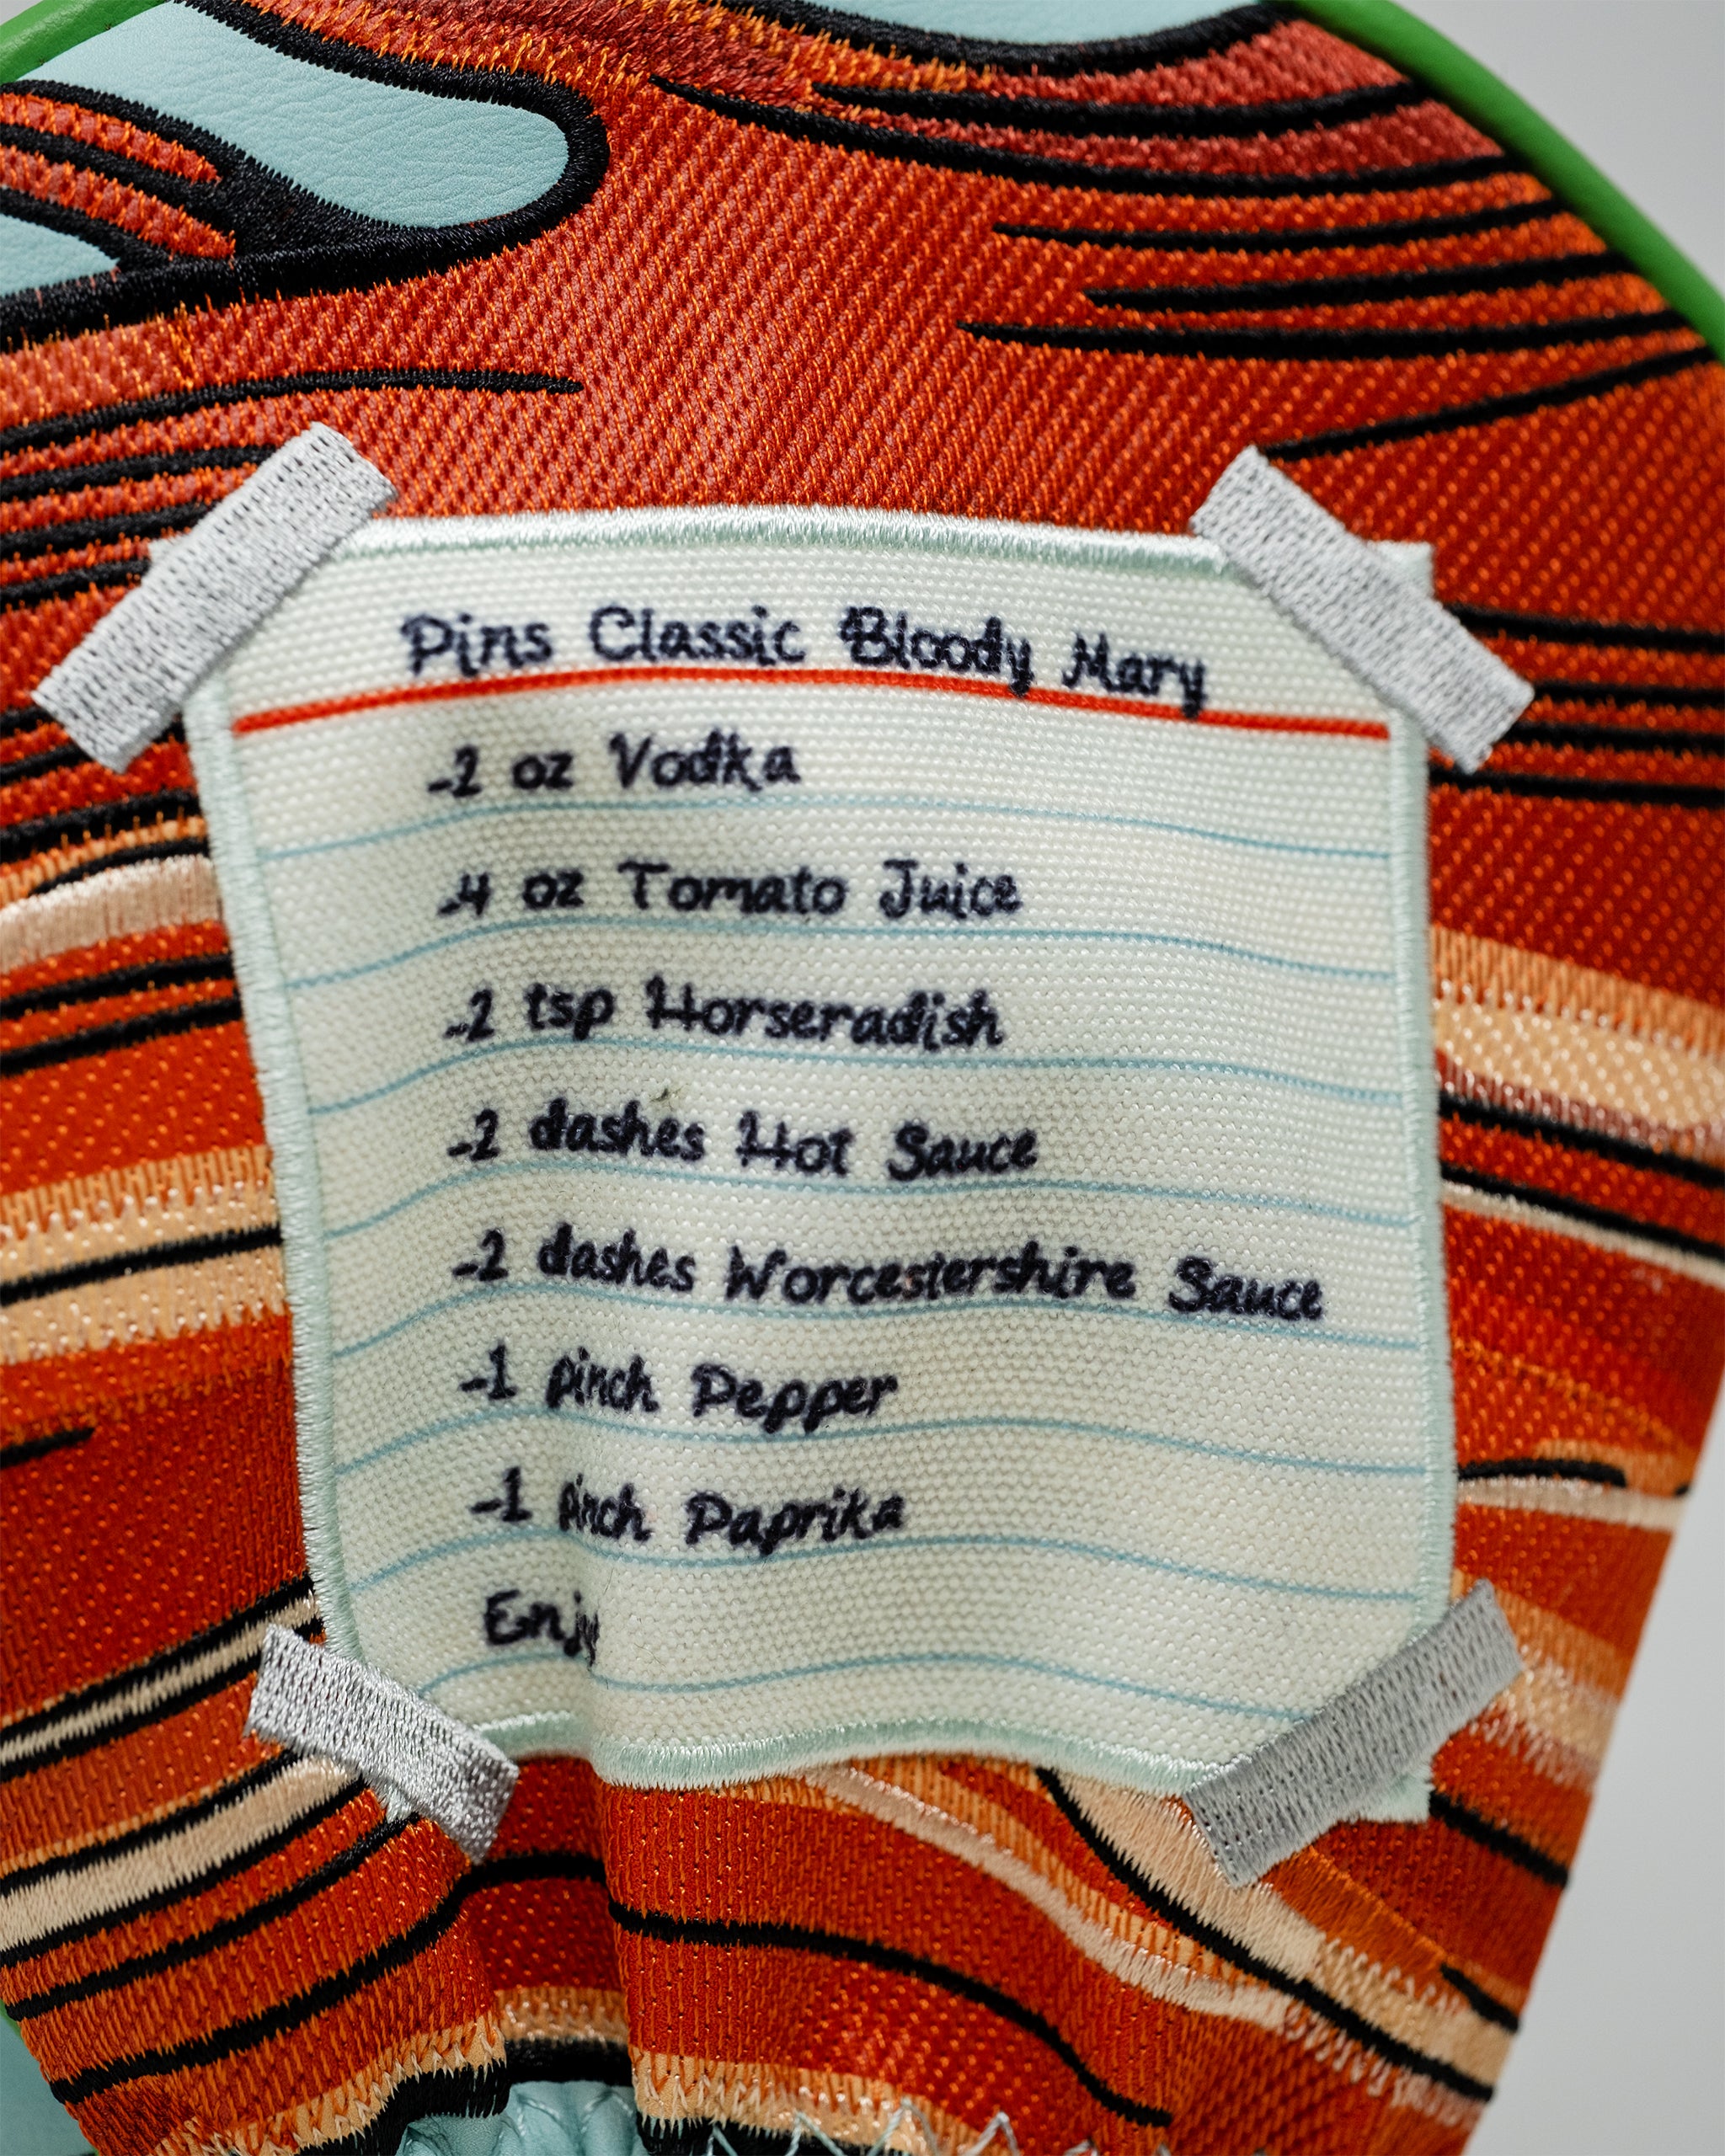 Pins Classic Bloody Mary
-2 oz Vodka
-4 oz Tomato Juice
-2 tsp Horseradish
-2 dashes Hot Sauce
-2 dashes Worcestershire Sauce
-1 pinch Pepper
-1 pinch Paprika
Enjoy